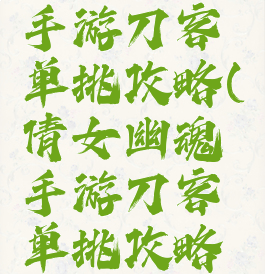 手游刀客
单挑攻略(
倩女幽魂
手游刀客
单挑攻略